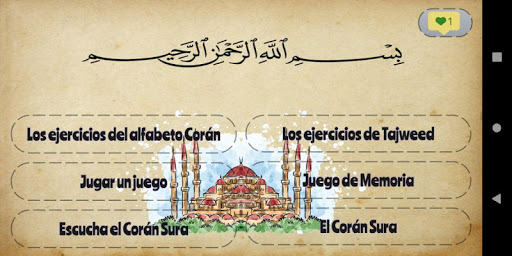 بِسْمِ اللَّهِ الرَّحْمَٰنِ الرَّحِيمِ
1
Los ejercicios del alfabeto Corán
Los ejercicios de Tajweed
Jugar un juego
Juego de Memoria
Escucha el Corán Sura
El Corán Sura